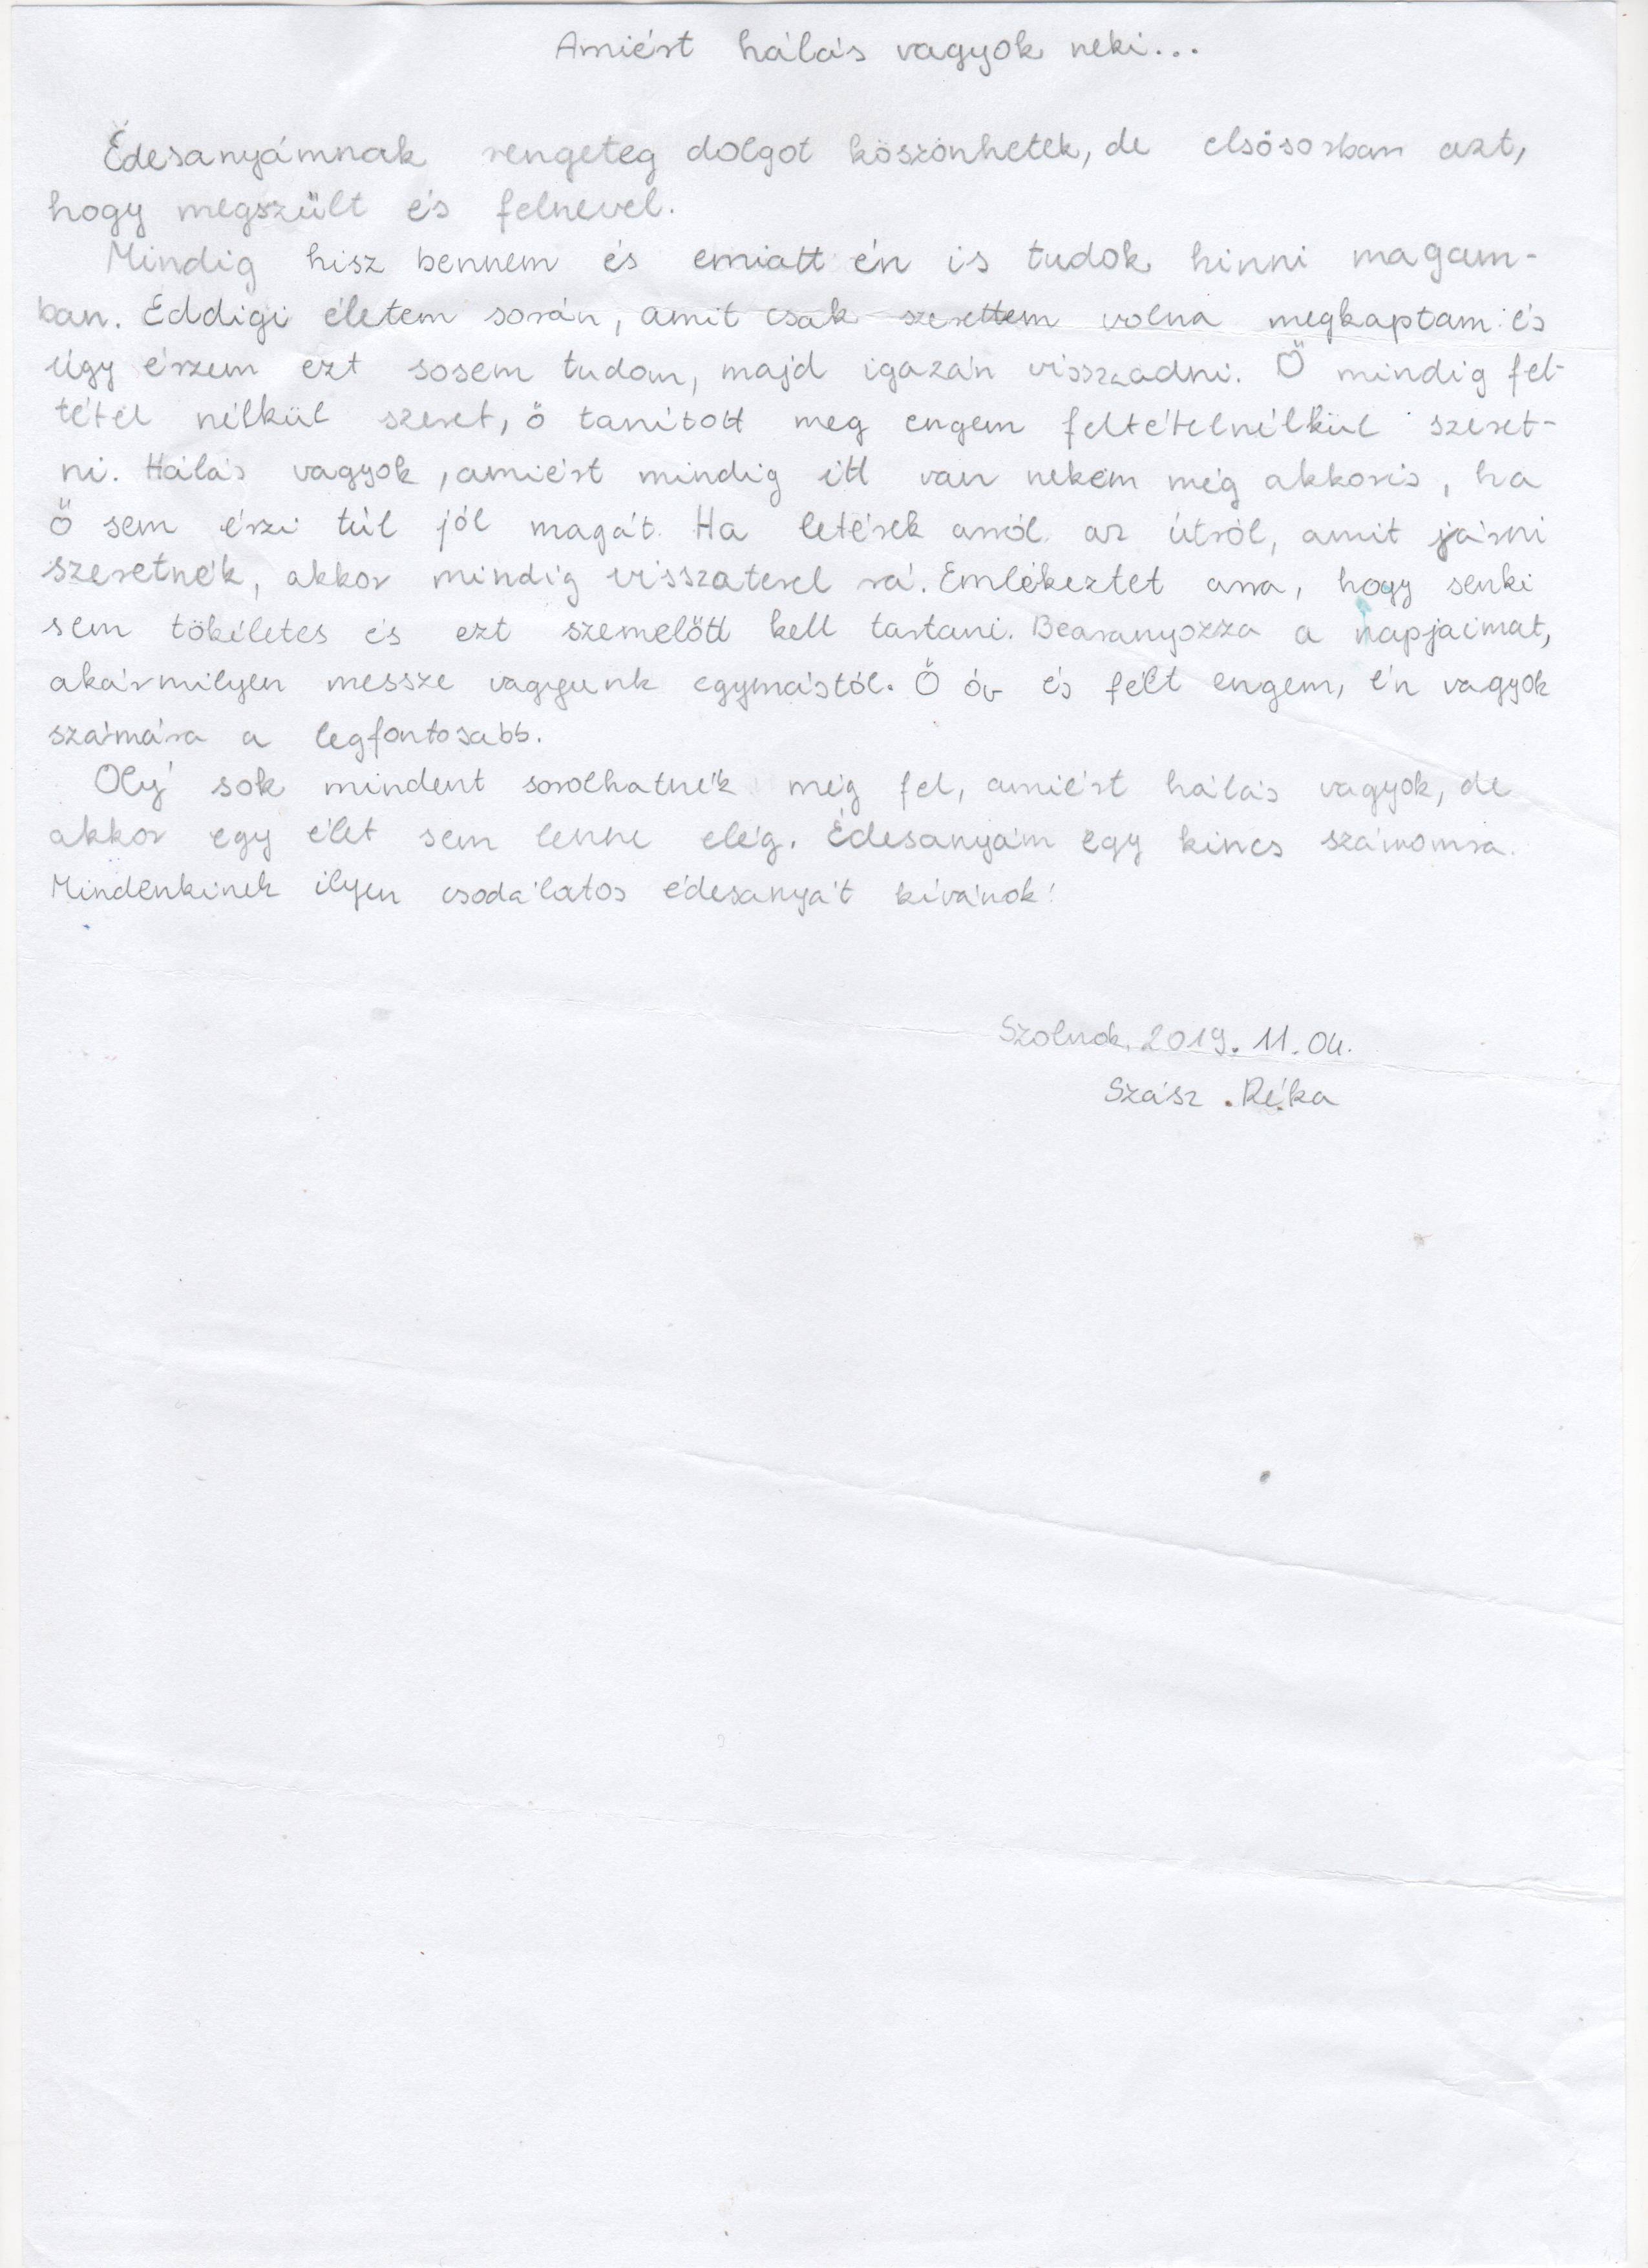 Amiért hálás vagyok neki...
Édesanyámnak rengeteg dolgot köszönhetek, de elsősorban azt,
hogy megszült és felnevel.
Mindig hisz bennem és emiatt én is tudok hinni magam-
ban. Eddigi életem során, amit csak szerettem volna megkaptam és
úgy érzem ezt sosem tudom, majd igazán visszaadni. Ő mindig fel-
tétel nélkül szeret, ő tanított meg engem feltételnélkül szeret-
ni. Hálás vagyok, amiért mindig itt van nekem még akkoris, ha
ő sem érzi túl jól magát. Ha letérek arról az útról, amit járni
szeretnék, akkor mindig visszaterel rá. Emlékeztet arra, hogy senki
sem tökéletes és ezt szemelőtt kell tartani. Bearanyozza a napjaimat,
akármilyen messze vagyunk egymástól. Ő óv és félt engem, én vagyok
számára a legfontosabb.
Oly sok mindent sorolhatnék még fel, amiért hálás vagyok, de
akkor egy élet sem lenne elég. Édesanyám egy kincs számomra.
Mindenkinek ilyen csodálatos édesanyát kívánok!
Szolnok, 2019. 11. 04.
Szász Réka